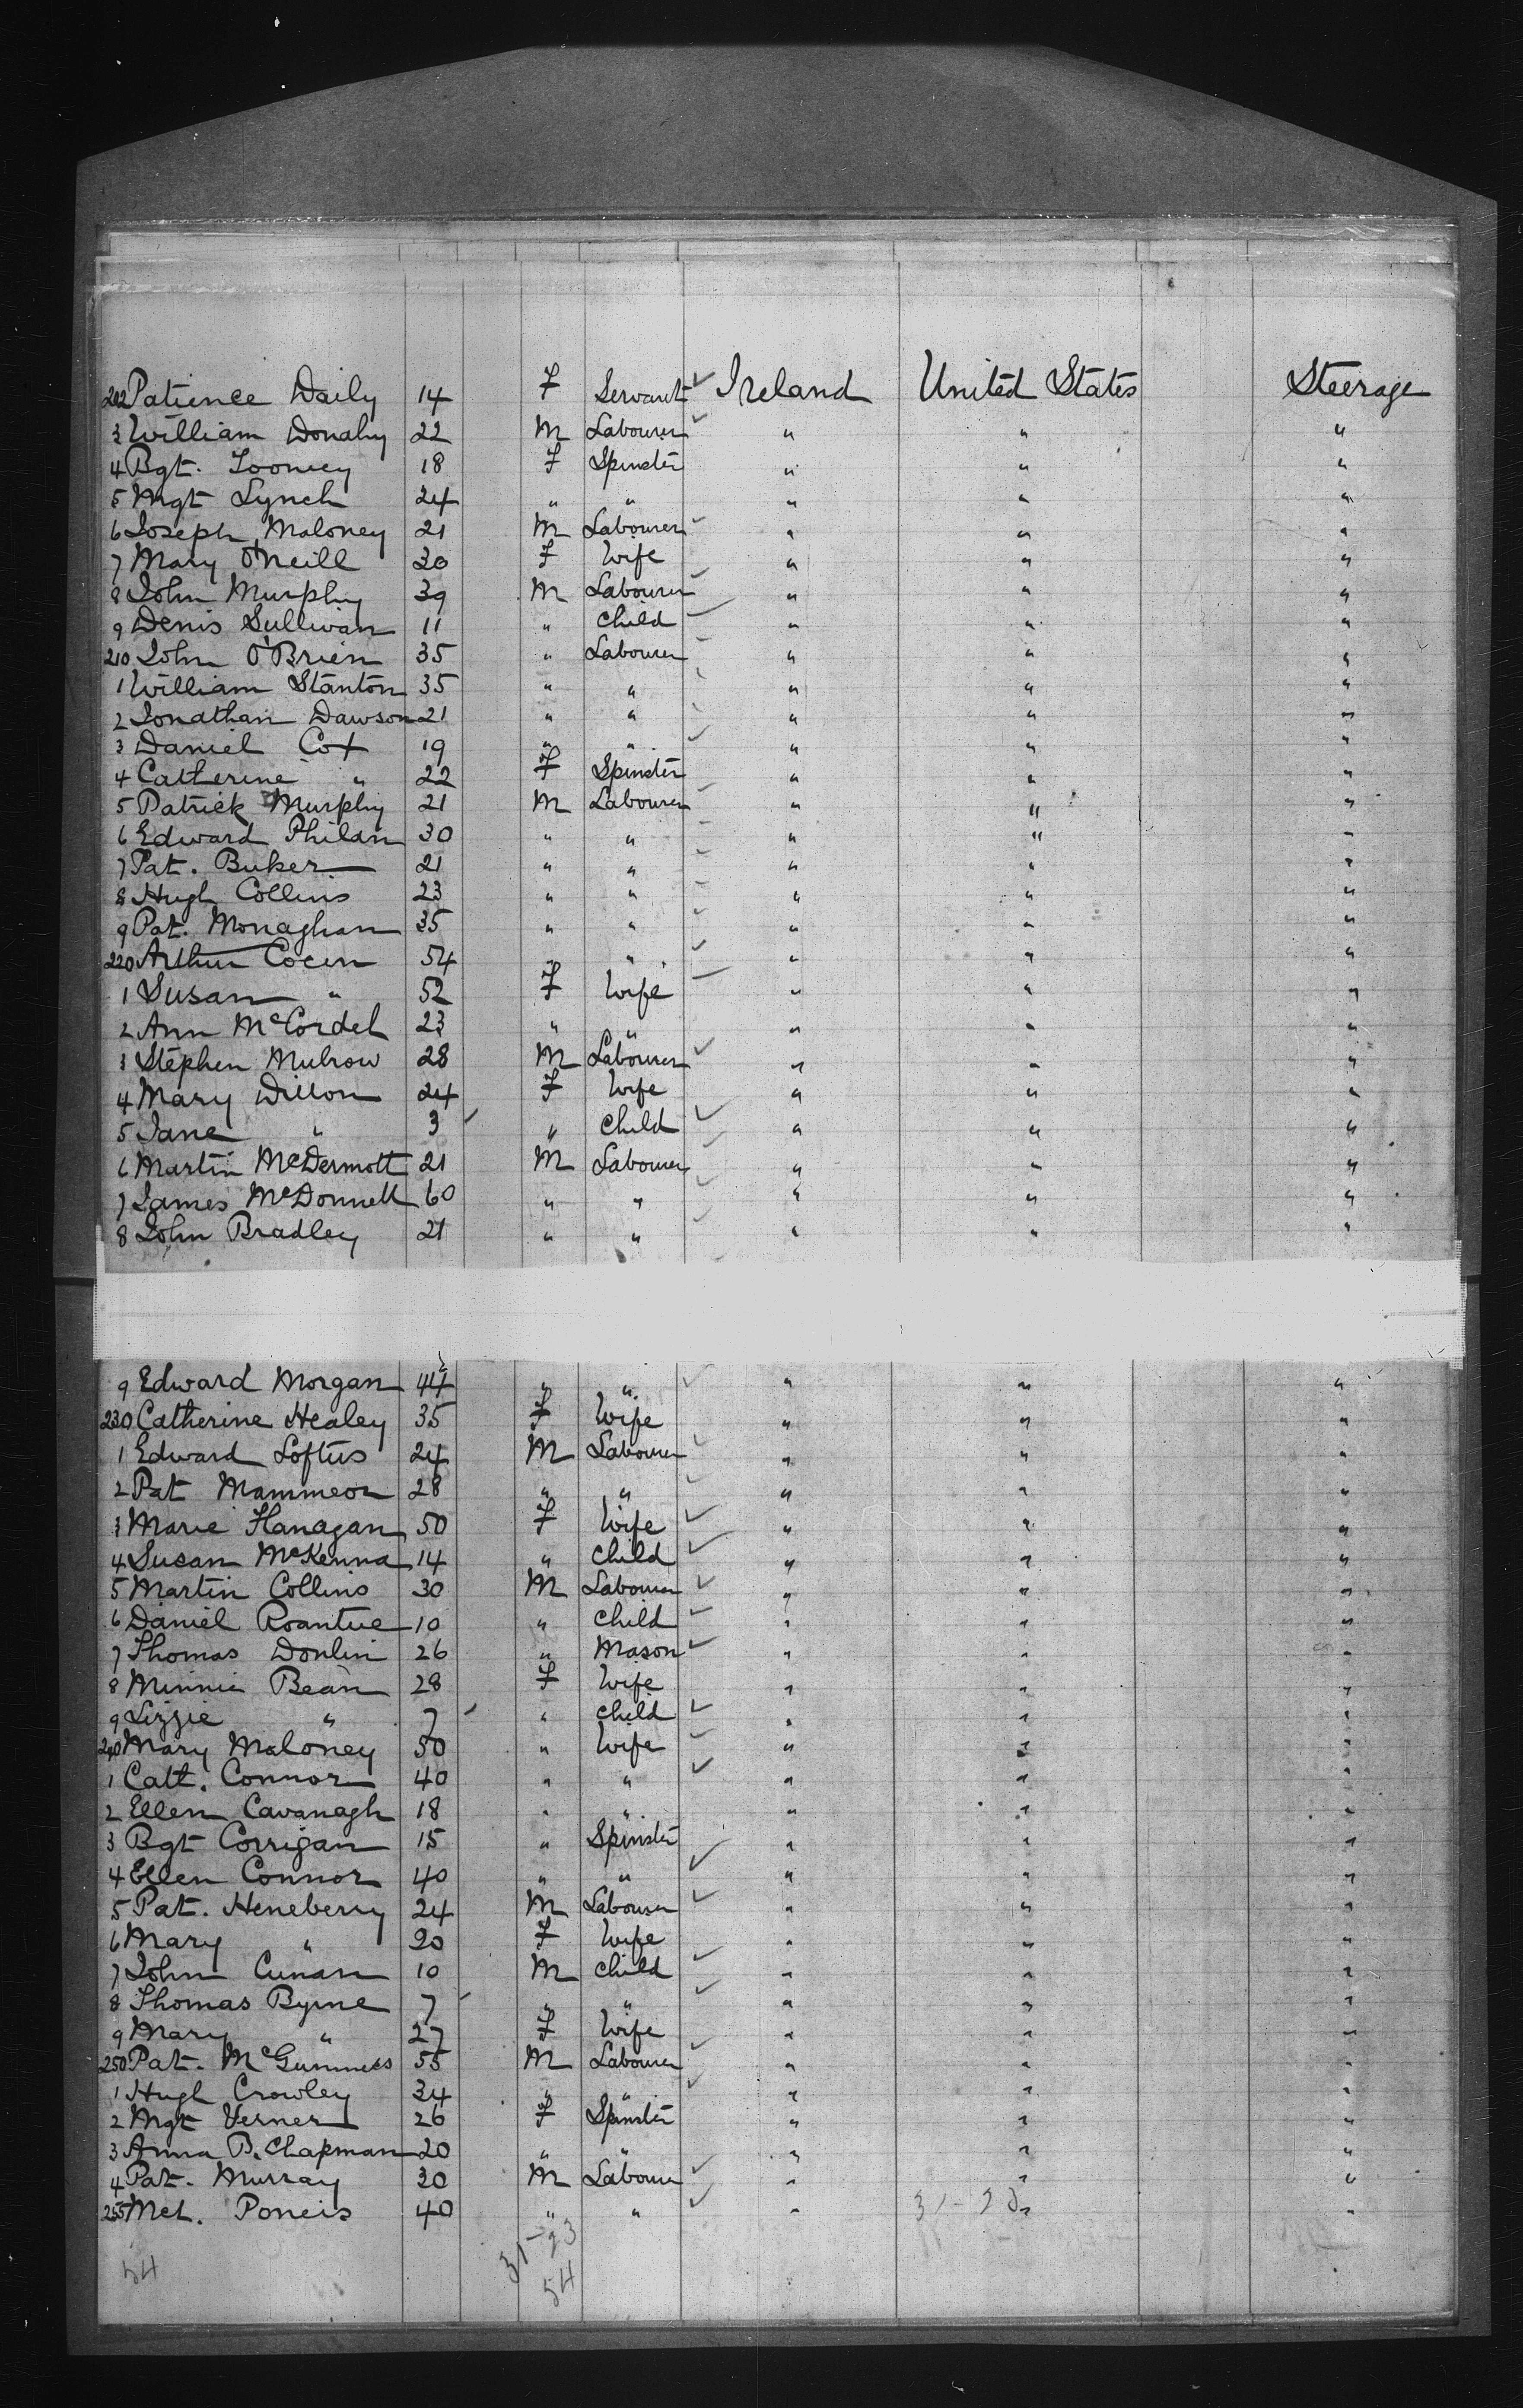 202 Patience Daily 14 F Servant ✓ Ireland United States Steerage
3 William Donahy 22 M Labourer ✓ " " "
4 Bgt. Toomey 18 F Spinster " " "
5 Mgt Lynch 24 " " " " "
6 Joseph Maloney 21 M Labourer " " "
7 Mary O'Neill 30 F Wife " " "
8 John Murphy 39 M Labourer " " "
9 Denis Sullivan 11 " Child " " "
210 John O'Brien 35 " Labourer " " "
1 William Stanton 35 " " " " "
2 Jonathan Dawson 21 " " " " "
3 Daniel Cox 19 " " ✓ " " "
4 Catherine " 22 F Spinster " " "
5 Patrick Murphy 21 M Labourer " " "
6 Edward Philan 30 " " " " "
7 Pat. Buker 21 " " " " "
8 Hugh Collins 23 " " " " "
9 Pat. Monaghan 35 " " ✓ " " "
220 Arthur Cocen 54 " " ✓ " " "
1 Susan " 52 F Wife " " "
2 Ann McCordel 23 " " " " "
3 Stephen Mulrow 28 M Labourer ✓ " " "
4 Mary Dillon 24 F Wife " " "
5 Jane " 3 " Child ✓ " " "
6 Martin McDermott 21 M Labourer ✓ " " "
7 James McDonnell 60 " " ✓ " " "
8 John Bradley 21 " " ✓ " " "
9 Edward Morgan 44 " " ✓ " " "
230 Catherine Healey 35 F Wife " " "
1 Edward Loftus 24 M Labourer ✓ " " "
2 Pat Mammeon 28 " " ✓ " " "
3 Marie Flanagan 50 F Wife ✓ " " "
4 Susan McKenna 14 " Child ✓ " " "
5 Martin Collins 30 M Labourer ✓ " " "
6 Daniel Roantue 10 " Child ✓ " " "
7 Thomas Donlin 26 " Mason ✓ " " "
8 Minnie Bean 28 F Wife " " "
9 Lizzie " 7 " Child ✓ " " "
240 Mary Maloney 50 " Wife ✓ " " "
1 Cath. Connor 40 " " ✓ " " "
2 Ellen Cavanagh 18 " " " " "
3 Bgt Corrigan 15 " Spinster " " "
4 Ellen Connor 40 " " ✓ " " "
5 Pat. Heneberry 24 M Labourer ✓ " " "
6 Mary " 20 F Wife " " "
7 John Cunan 10 M Child ✓ " " "
8 Thomas Byrne 7 " " ✓ " " "
9 Mary " 27 F Wife " " "
250 Pat. McGunness 55 M Labourer ✓ " " "
1 Hugh Crowley 34 " " ✓ " " "
2 Mgt Verner 26 F Spinster " " "
3 Anna B. Chapman 20 " " " " "
4 Pat. Murray 30 M Labourer ✓ " " "
255 Met. Poneis 40 " " ✓ " 31-23 " "
54 31-23
54